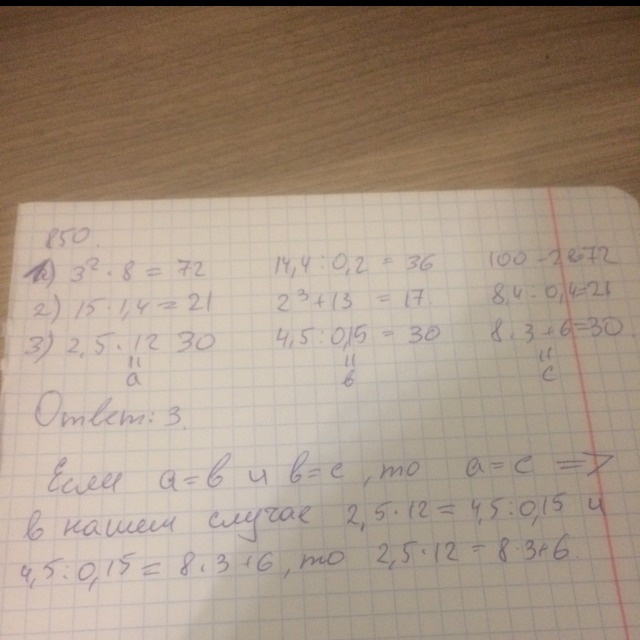 850.
1) 3² · 8 = 72 14,4 : 0,2 = 36 100 - 28 = 72
2) 15 · 1,4 = 21 2³ + 13 = 17 8,4 : 0,4 = 21
3) 2,5 · 12 30 4,5 : 0,15 = 30 8 · 3 + 6 = 30
а в с
Ответ: 3.
Если а = в и в = с, то а = с =>
в нашем случае 2,5 · 12 = 4,5 : 0,15 и
4,5 : 0,15 = 8 · 3 + 6, то 2,5 · 12 = 8 · 3 + 6.